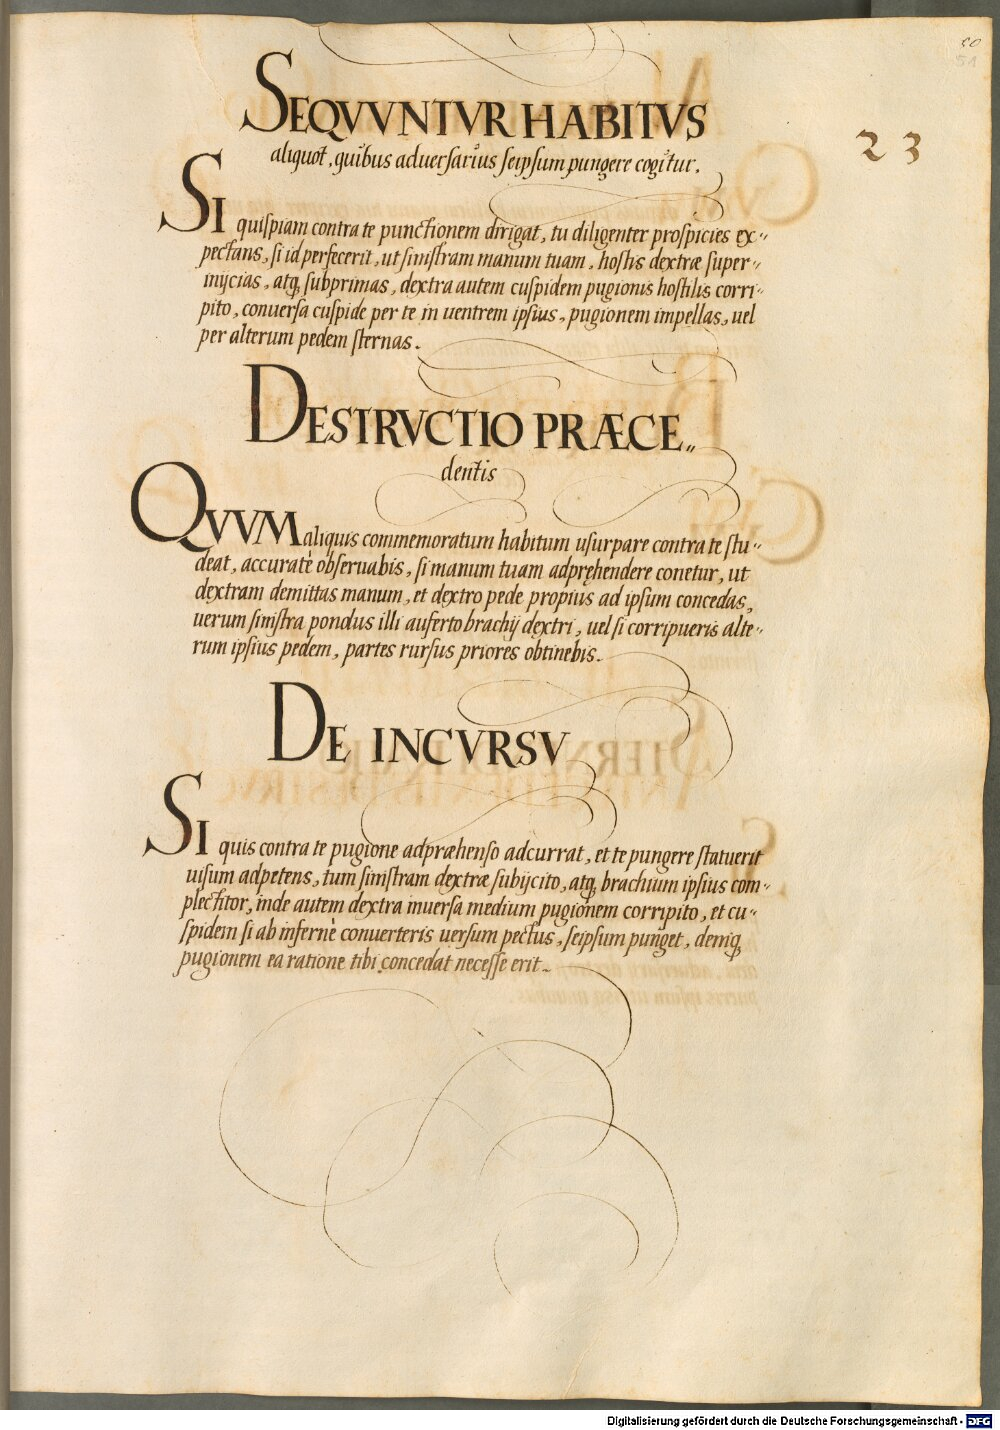 50
51
23
SEQVVNTVR HABITVS
aliquot, quibus aduersarius seipsum pungere cogitur.
SI quispiam contra te punctionem dirigat, tu diligenter prospicies ex„
pectans, si id perfecerit, ut sinistram manum tuam, hostis dextræ super„
inijcias, atq; subprimas, dextra autem cuspidem pugionis hostilis corri„
pito, conuersa cuspide per te in uentrem ipsius, pugionem impellas, uel
per alterum pedem sternas.
DESTRVCTIO PRÆCE„
dentis
QVVM aliquis commemoratum habitum usurpare contra te stu„
deat, accuratè obseruabis, si manum tuam adpręhendere conetur, ut
dextram demittas manum, et dextro pede propius ad ipsum concedas,
uerum sinistra pondus illi auferto brachij dextri, uel si corripueris alte„
rum ipsius pedem, partes rursus priores obtinebis.
DE INCVRSV
SI quis contra te pugione adpræhenso adcurrat, et te pungere statuerit
uisum adpetens, tum sinistram dextræ subijcito, atq; brachium ipsius com„
plectitor, inde autem dextra inuersa medium pugionem corripito, et cu„
spidem si ab infernè conuerteris uersum pectus, seipsum punget, deniq;
pugionem ea ratione tibi concedat necesse erit.
Digitalisierung gefördert durch die Deutsche Forschungsgemeinschaft - DFG